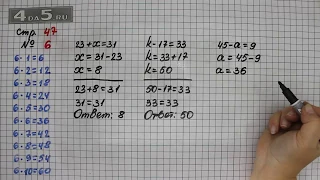 4DA5.RU
Стр 47
№ 6
6·1=6
6·2=12
6·3=18
6·4=24
6·5=30
6·6=36
6·7=42
6·8=48
6·9=54
6·10=60
23+x=31
x=31-23
x=8
23+8=31
31=31
Ответ: 8
k-17=33
k=33+17
k=50
50-17=33
33=33
Ответ: 50
45-a=9
a=45-9
a=36